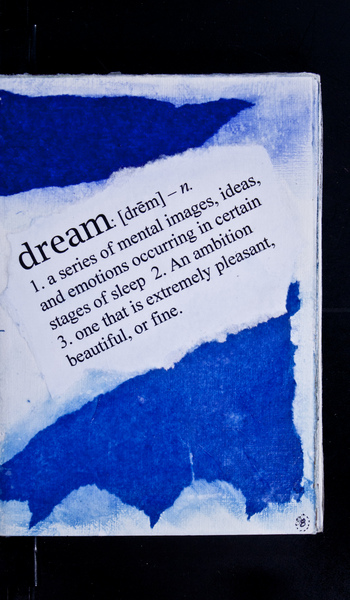 dream: [drēm] – n.
1. a series of mental images, ideas,
and emotions occurring in certain
stages of sleep 2. An ambition
3. one that is extremely pleasant,
beautiful, or fine.